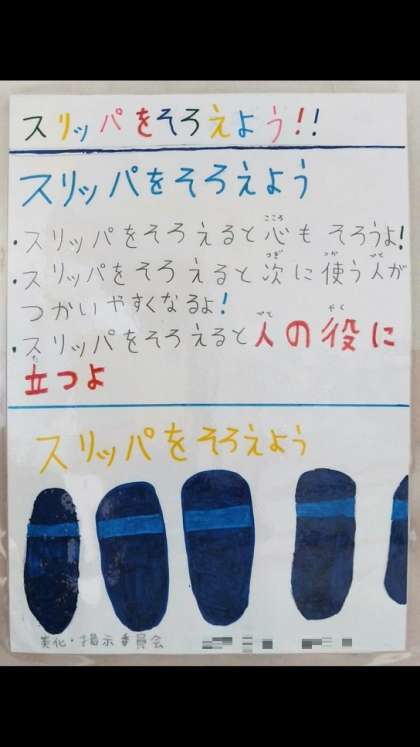 スリッパをそろえよう!!
スリッパをそろえよう
・スリッパをそろえると心もそろうよ!
・スリッパをそろえると次に使う人が
つかいやすくなるよ!
・スリッパをそろえると人の役に
立つよ
スリッパをそろえよう
美化・掲示委員会